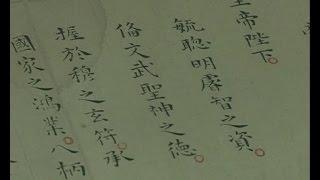 皇帝陛下
毓聰明睿智之資
備文武聖神之德
握於穆之玄符承
國家之鴻業八柄